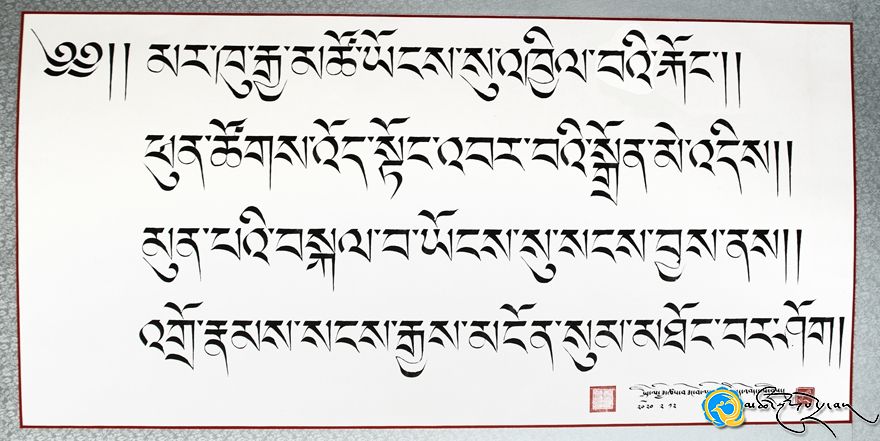 ༄༅།། མར་ཁུ་རྒྱ་མཚོ་ཡོངས་སུ་འཁྱིལ་བའི་རྐོང་།།
ཕུན་ཚོགས་འོད་སྟོང་འབར་བའི་སྒྲོན་མེ་འདིས།།
མུན་པའི་བསྐལ་བ་ཡོངས་སུ་སངས་བྱས་ནས།།
འགྲོ་རྣམས་སངས་རྒྱས་མངོན་སུམ་མཐོང་བར་ཤོག།
༢༠༢༠ ༢ ༡༢